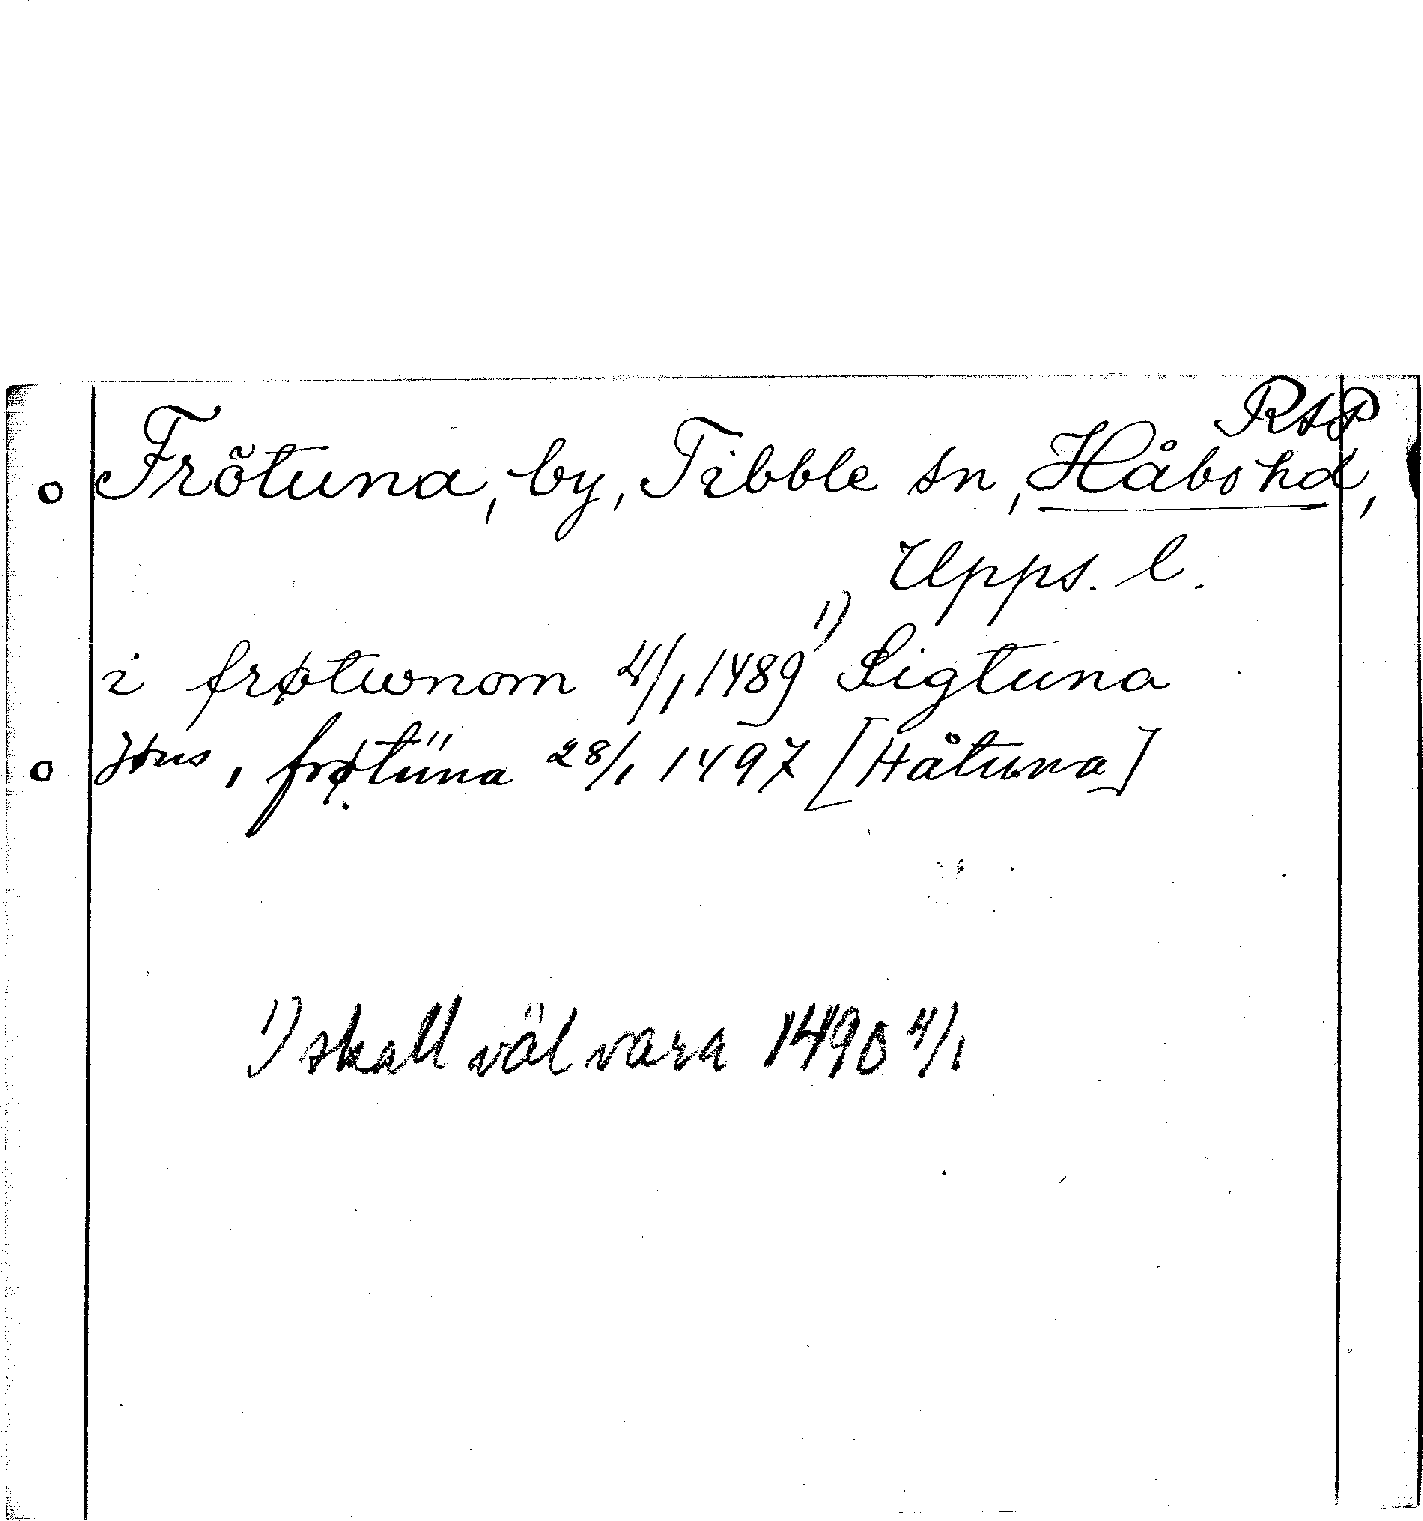 RAP
Frötuna, by, Tibble sn, Håbo hd,
Upps. l.
i frøtwnom 4/1 1489 1) Sigtuna
jøns, frøtüna 28/1 1497 [Håtuna]
1) skall väl vara 1490 4/1